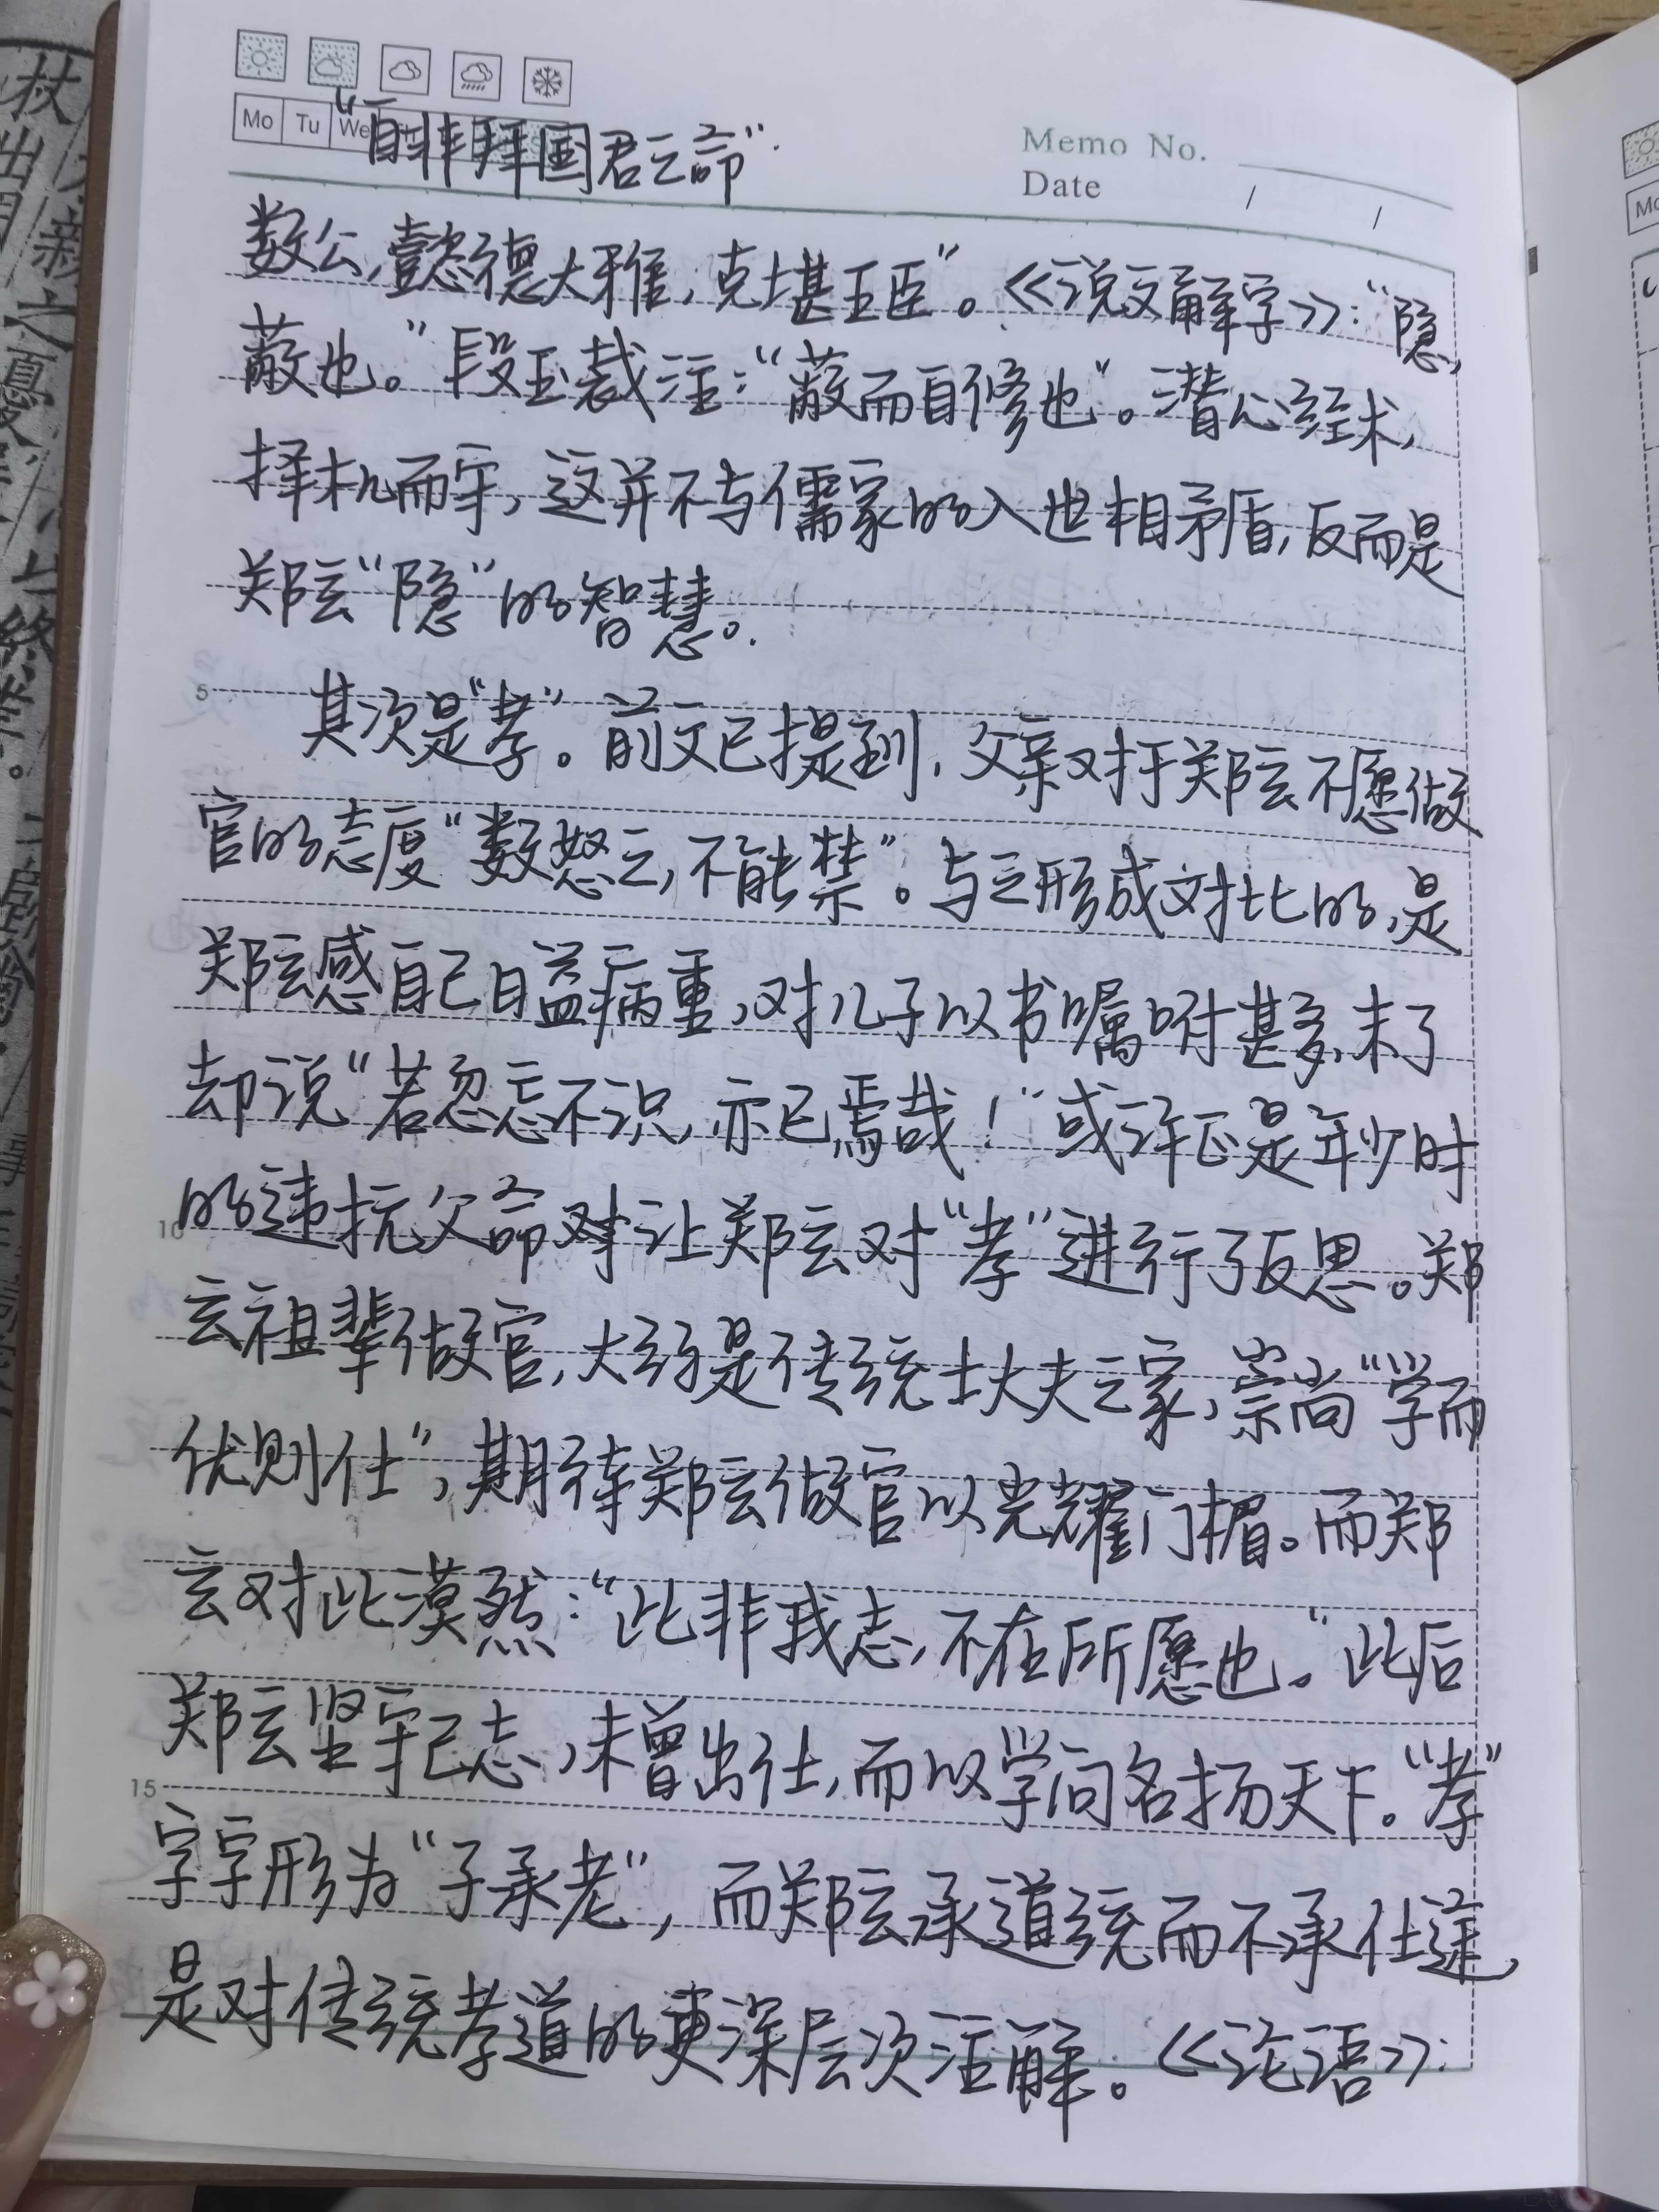 Mo Tu We
Memo No.
Date / /
“自非拜国君之命”
数公,懿德大雅,克堪王臣”。《说文解字》:“隐,
蔽也。”段玉裁注:“蔽而自修也”。潜心经术,
择机而牢,这并不与儒家的入世相矛盾,反而是
郑玄“隐”的智慧。
5
其次是“孝”。前文已提到,父亲对于郑玄不愿做
官的态度“数怒之,不能禁”。与之形成对比的,是
郑玄感自己日益病重,对儿子以书嘱咐甚多,末了
却说“若忽忘不识,亦已焉哉!”或许正是年少时
10
的违抗父命 让郑玄对“孝”进行了反思。郑
玄祖辈做官,大约是传统士大夫之家,崇尚“学而
优则仕”,期待郑玄做官以光耀门楣。而郑
玄对此漠然:“此非我志,不在所愿也。”此后
郑玄坚牢己志,未曾出仕,而以学问名扬天下。“孝”
15
字字形为“子承老”,而郑玄承道统而不承仕途,
是对传统孝道的更深层次注解。《论语》:
杖
出
門
新
之
憂
終